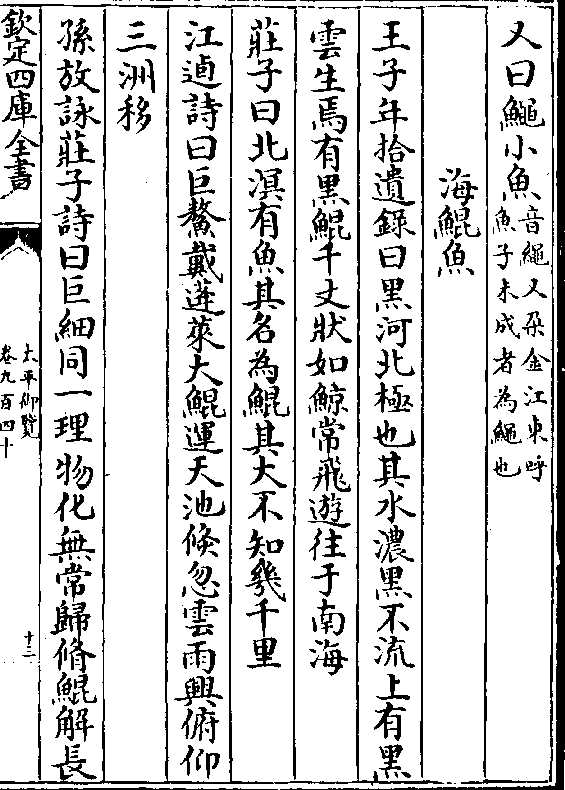 又曰鱦小魚音繩又朶金江東呼
魚子未成者為鱦也
海鯤魚
王子年拾遺錄曰黑河北極也其水濃黑不流上有黑
雲生焉有黑鯤千丈狀如鯨常飛遊往于南海
莊子曰北溟有魚其名為鯤其大不知幾千里
江逌詩曰巨鰲戴蓬萊大鯤運天池倏忽雲雨興俯仰
三洲移
孫放詠莊子詩曰巨細同一理物化無常歸脩鯤解長
欽定四庫全書
太平御覽
卷九百四十
十三